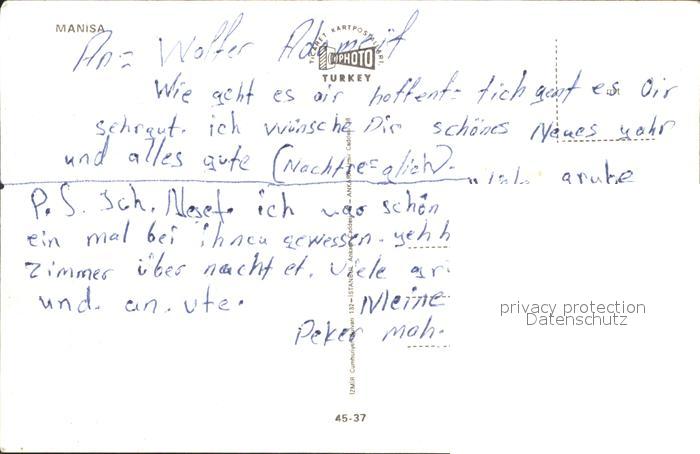 MANISA
An= Wolter Adomeit
TICARET KARTPOSTAL
PHOTO
TURKEY
Wie geht es dir hoffent= lich geht es Dir
sehrgut. ich wünsche Dir schönes Neues yahr
und alles gute (Nachtreglich).
P.S. Ich. Neset. ich war schön
ein mal bei ihnen gewessen.
Zimmer über nachtet. Viele
und. an. ute. Meine
Peker
IZMIR Cumhuriyet 132-ISTANBUL Ankara Caddesi ANKARA
45-37
privacy protection
Datenschutz